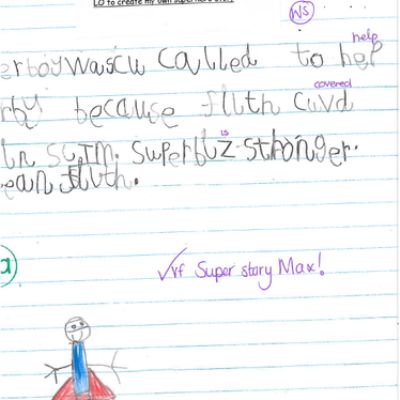 LO to create my own superhero story
WS
help
erboy was cu called to help
covered
rby because fluth cuvd
is
in sLIM. superbuz stronger.
ean fluth.
a
✓vf Super story Max!